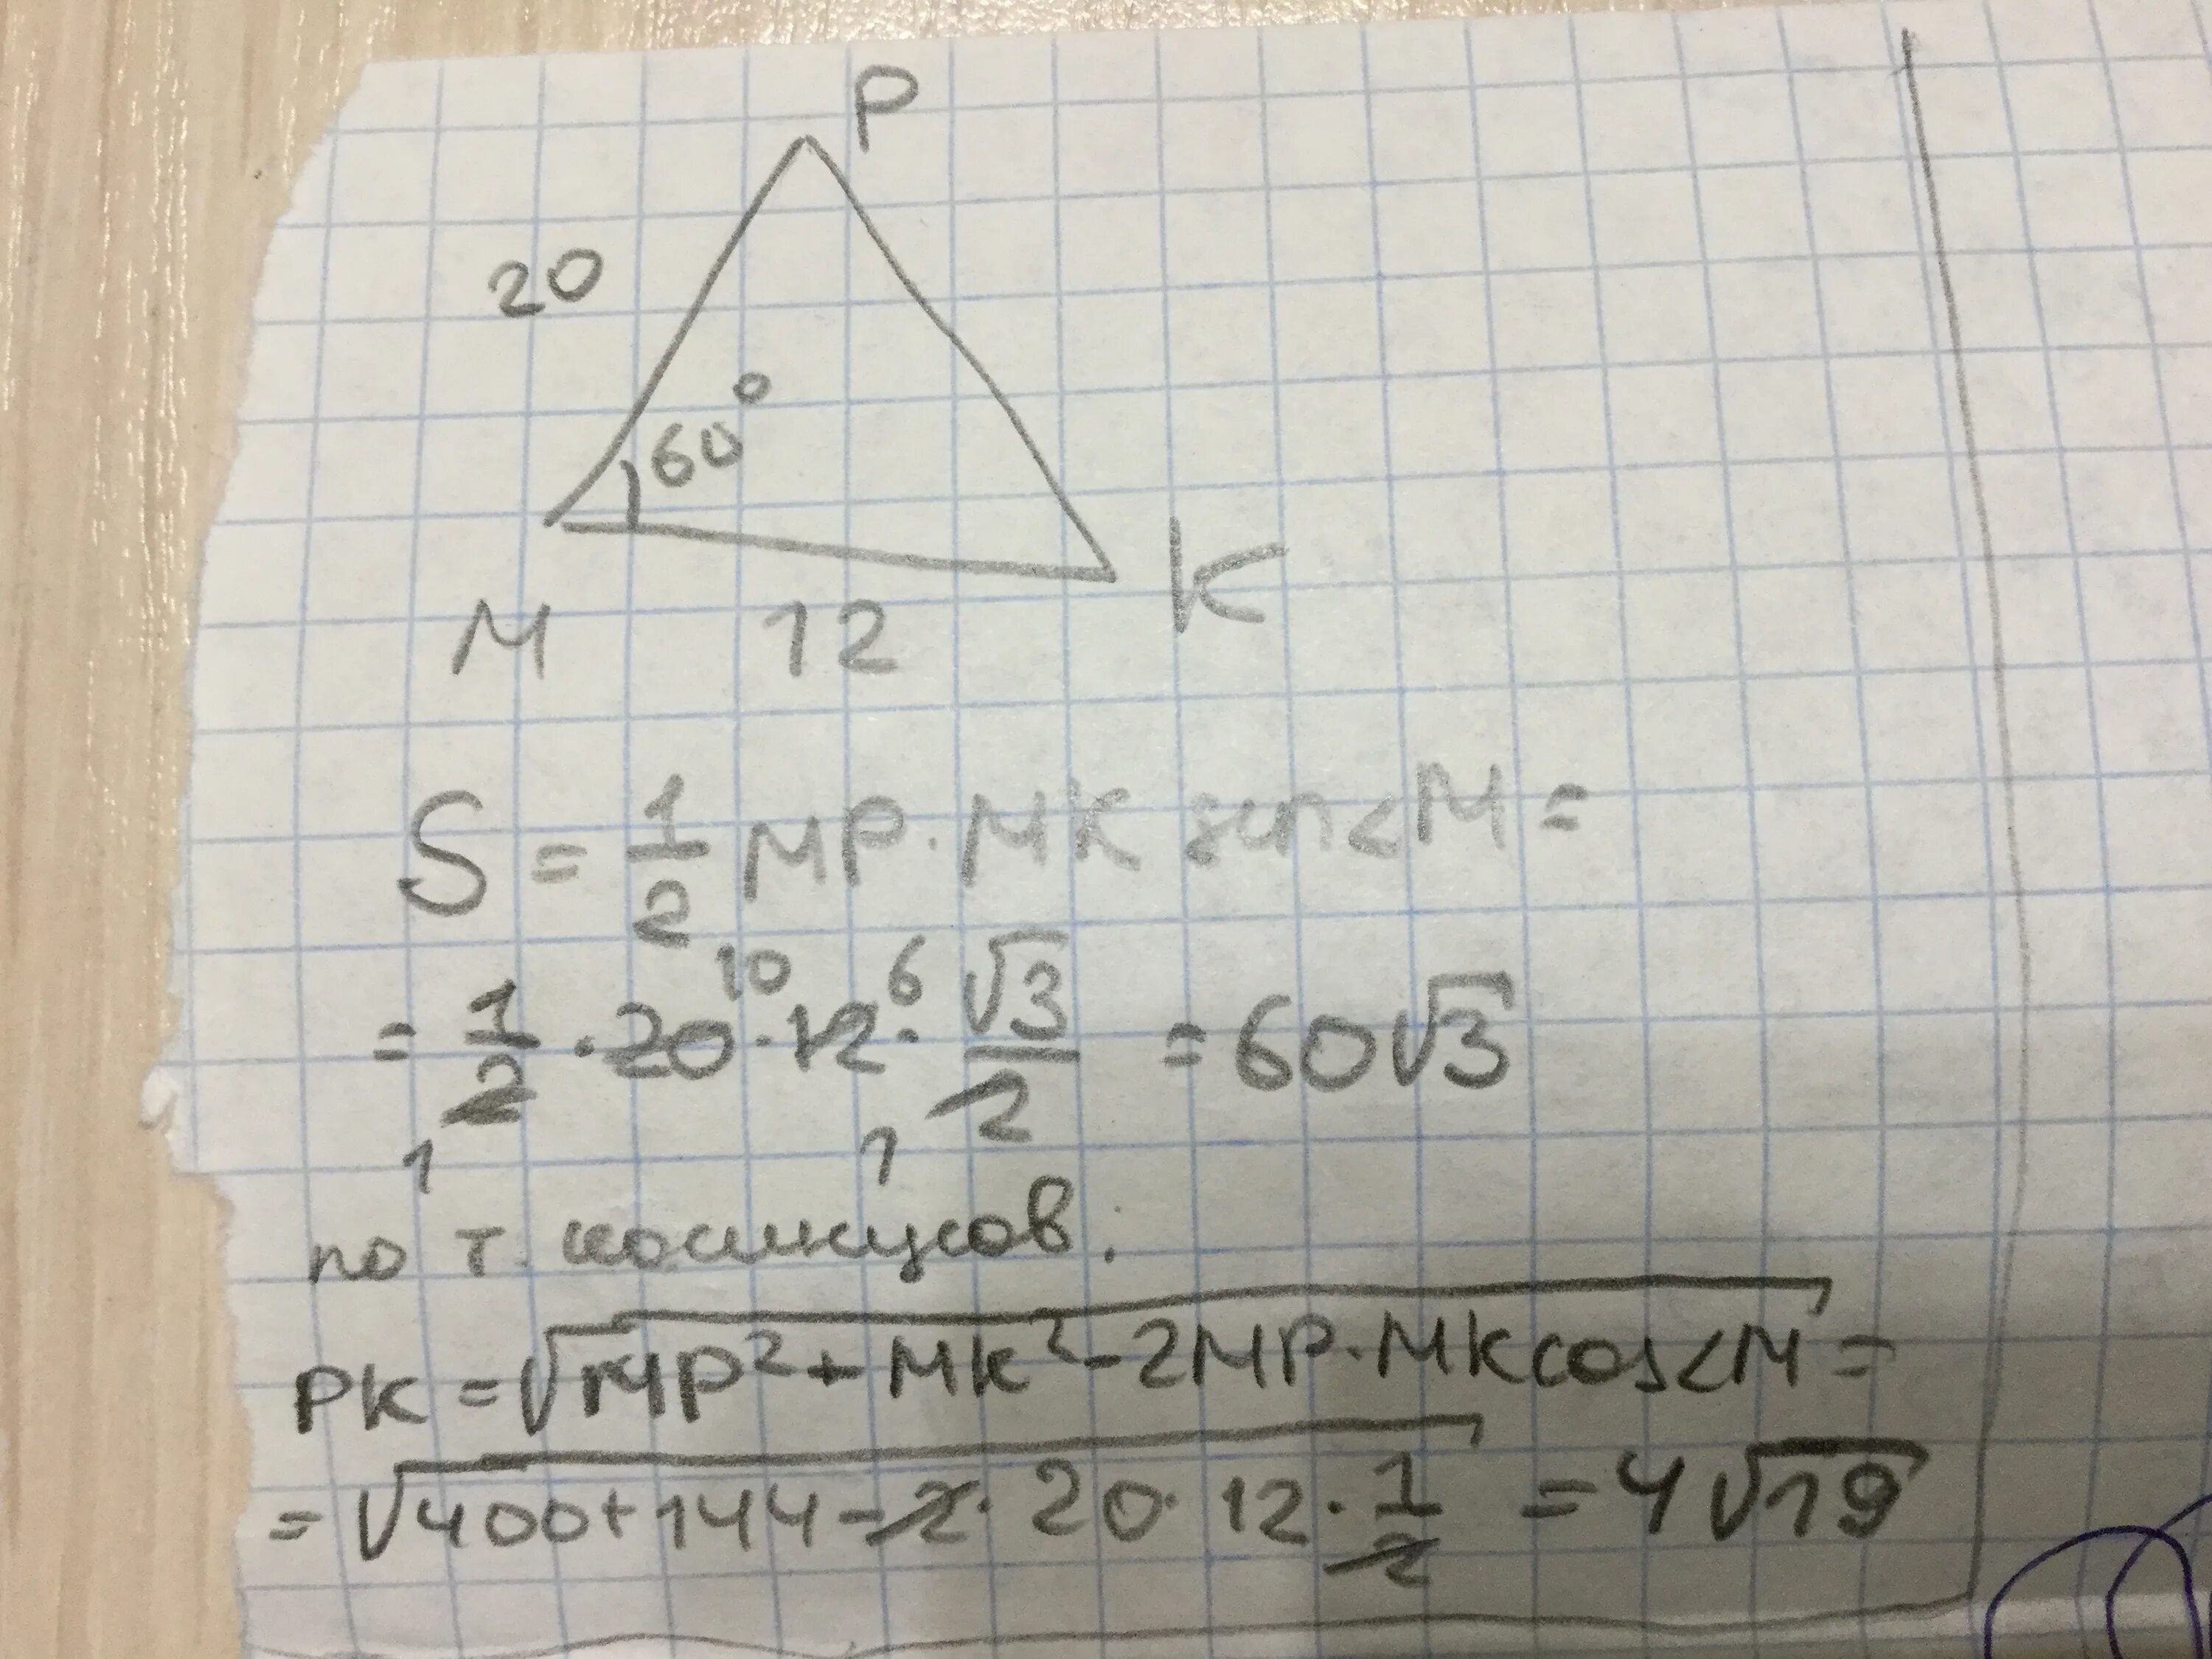 P
20
60°
M 12 K
S = 1/2 MP · MK sin∠M =
= 1/2 · 20 10 · 12 6 · √3/2 = 60√3
1 1
по т. косинусов:
PK = √(MP² + MK² - 2MP · MK cos∠M) =
= √(400 + 144 - 2 · 20 · 12 · 1/2) = 4√19